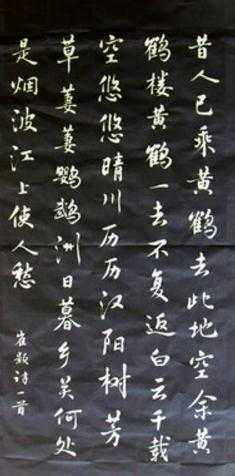 昔人已乘黄鹤去此地空余黄
鹤楼黄鹤一去不复返白云千载
空悠悠晴川历历汉阳树芳
草萋萋鹦鹉洲日暮乡关何处
是烟波江上使人愁
崔颢诗一首